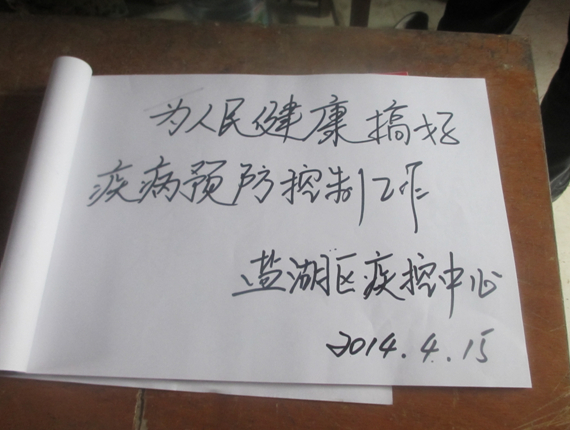 为人民健康搞好
疾病预防控制工作
盐湖区疾控中心
2014.4.15